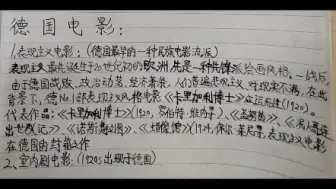 德国电影：
1.表现主义电影：(德国最早的一种民族电影流派)
表现主义最先诞生于20世纪初的欧洲,先是一种先锋派绘画风格。一战后
由于德国战败,政治动荡,经济萧条,人们普遍悲观,对现实不满,在此
背景下,德No.1部表现主义风格电影《卡里加利博士》应运而生(1920)。
代表作品：《卡里加利博士》(1920,罗伯特·维内)、《
出世者记》、《诺斯费拉图》、《大都会》(1924,保尔·莱尼),表现主义电影
在德国的封箱之作
2、室内剧电影：(1920s出现于德国)